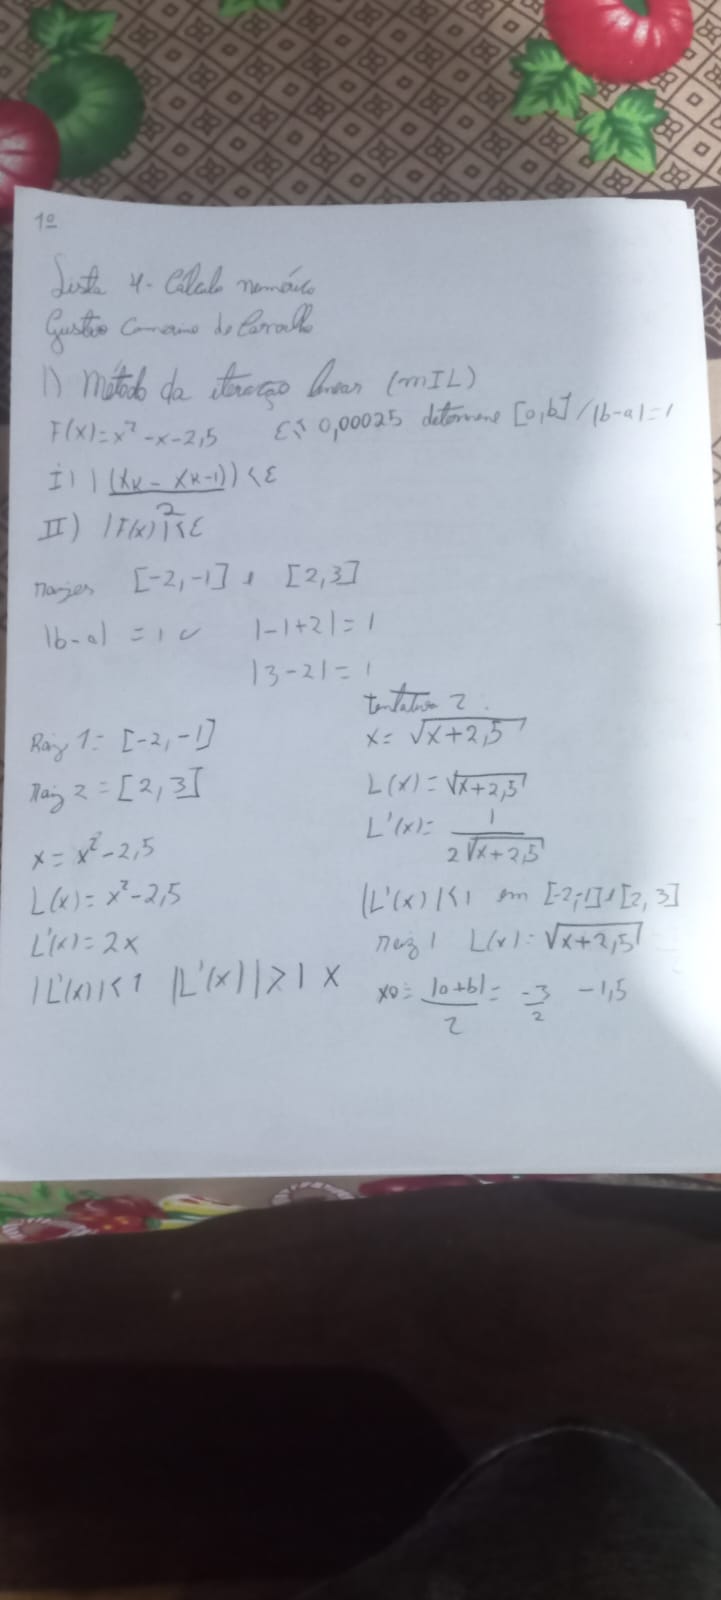 1º
Lista 4 - Cálculo numérico
Gustavo de Carvalho
1) Método da iteração linear (MIL)
F(x) = x² - x - 2,5 ε ≤ 0,00025 determine [a,b] / |b-a| = 1
I) | (xk - xk-1) | < ε
2
II) |F(x)| < ε
[-2,-1] e [2,3]
|b-a| = 1 ✓ |-1+2| = 1
|3-2| = 1
Raiz 1 = [-2,-1]
Raiz 2 = [2,3]
x = x² - 2,5
L(x) = x² - 2,5
L'(x) = 2x
|L'(x)| < 1 |L'(x)| > 1 X
tentativa 2.
x = √(x+2,5)
L(x) = √(x+2,5)
L'(x) = 1
2√(x+2,5)
|L'(x)| < 1 em [-2,-1] e [2,3]
raiz 1 L(x) = √(x+2,5)
x0 = |a+b| = -3 -1,5
2 2